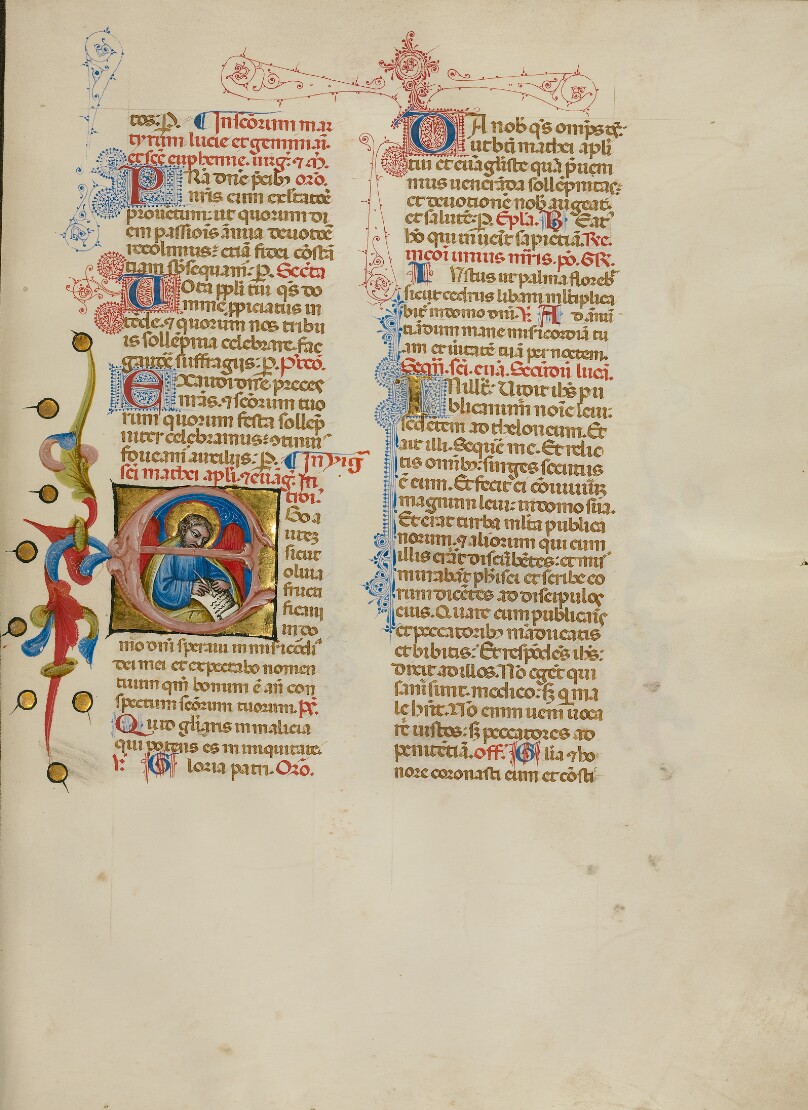 tos. P. In scōrum mar
tyrum lucie et geminiāi.
et scē euphemie. uirḡ. ⁊ m̄.
PRa dn̄e p̄cib; oro.
nr̄is cum exſtatōē
prouetum: ut quorum di
em passiois ānua deuotōē
recolimus: etiā fidei cōstā
tiam sb̄sequam̄. P. Sec̄ta
Uota ppl̄i tui q̄s do
mine ppiciatus in
tēde. ⁊ quorum nos tribu
is sollēpnia celebrare. fac
gaudē suffragiis: P. P̄tcō.
Exaudi dn̄e preces
nr̄as. ⁊ scōrum tuo
rum quorum festa sollep
niter celebramus: ⁊tinuis
foueam̄ auxiliis: P. In uig̃
sc̄i mathei apl̄i. ⁊ euāg. In
troi.
Ego a
utē;
sicut
oliua
fructi
ficaui
in do
mo dn̄i speraui in misicōdi
dei mei et expectabo nomen
tuum qm̄ bonum ē añ con
spectum scōrum tuorum. Ps.
Quid gl̄iaris in malicia
qui potens es in iniquitate.
V. Gloria patri. Oro.
DA nob q̄s omp̄s d̄s.
ut bt̄i mathei apl̄i
tui et euāgl̄iste quā p̄uem
mus uenerāda sollēpnitas:
et deuotionē nob augeat.
et salutē. P. Epl̄a. Beat
us qui inuenit sapiētiā. Re.
in cōi unius mr̄is. po. GR.
Iustus ut palma floreb̄
sicut cedrus libani ml̄tiplica
bit̄ in domo dn̄i. V. Ad annū
tiādum mane misicordiā tu
am et ūitatē tuā per noctem.
Seqn̄. sc̄i. euā. Secūdū lucā.
In illo t̄. Uidit ih̄s pu
blicanum noīe leui:
sedētem ad theloneum. Et
ait illi. Sequē me. Et relic
tis omīb; surges secutus
ē eum. Et fecit ei cōuiuiū;
magnum leui: in domo sua.
Et erat turba ml̄ta publica
norum. ⁊ aliorum qui cum
illis erāt discūbētes: et mur
murabāt pħisei et scribe eo
rum dicētes ad discipulos
eius. Quare cum publicanis
et peccatorib; māducatis
et bibitis: Et respōdēs ih̄s:
dixit ad illos. Nō egēt qui
sani sunt. medico: s; q̄ ma
le hn̄t. Nō enim ueni uoca
re iustos: s; peccatores ad
penitētiā. off. Glīa ⁊ ho
nore coronasti eum et cōsti